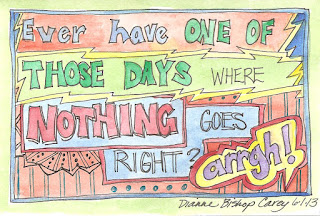 Ever have ONE OF
THOSE DAYS WHERE
NOTHING GOES
RIGHT? arrgh!
Dianne Bishop Carey 6/1/13